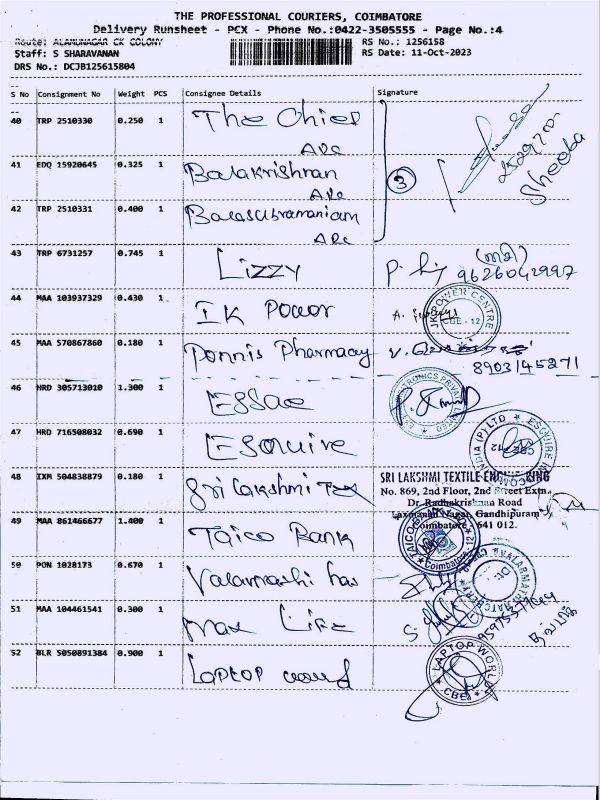 THE PROFESSIONAL COURIERS, COIMBATORE
Delivery Runsheet - PCX - Phone No.:0422-3505555 - Page No.:4
Route: ALAMUNAGAR CK COLONY RS No.: 1256158
Staff: S SHARAVANAN RS Date: 11-Oct-2023
DRS No.: DCJB125615804
S No Consignment No Weight PCS Consignee Details Signature
40 TRP 2510330 0.250 1 The Chief
ADC
41 EDQ 15920645 0.325 1 Balakrishnan
ADC
3
Sheeba
42 TRP 2510331 0.400 1 Balasubramaniam
ADC
43 TRP 6731257 0.745 1 Lizzy
9626042997
44 MAA 103937329 0.430 1 IK Power
JK POWER CENTRE CBE - 12
45 MAA 570867860 0.180 1 Ponnis Pharmacy
8903145271
46 HRD 305713010 1.300 1 Essae
47 HRD 716508032 0.690 1 Esquire
48 IXM 504838879 0.180 1 Sri Lakshmi Tex
SRI LAKSHMI TEXTILE ENGINEERING
No. 869, 2nd Floor, 2nd Street Extn.,
Dr. Radhakrishnana Road
Laxmanan Nagar, Gandhipuram
Coimbatore - 641 012.
49 MAA 861466677 1.400 1 Taico Bank
Coimbatore - 12
50 PON 1028173 0.670 1 Valarmathi
51 MAA 104461541 0.300 1 Max Life
52 BLR 5050891384 0.900 1 Laptop world
LAPTOP WORLD
CBE